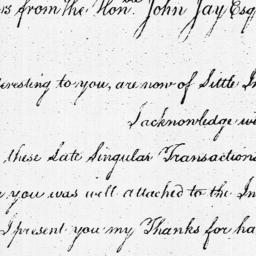 from the Hon.ble John Jay Esq
teresting to you, are now of Little In
I acknowledge wi
these Late Singular Transaction
you was well attached to the In
I present you my Thanks for ha